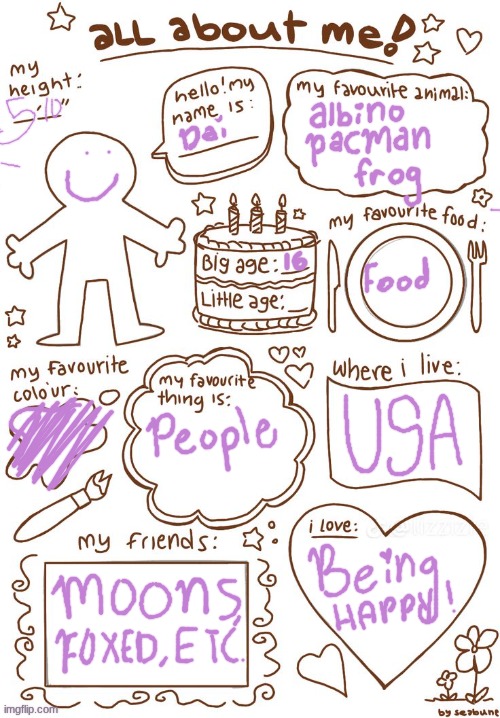 all about me!
my
height:
5'10"
hello! my
name is:
Dai
my favourite animal:
albino
pacman
frog
Big age: 16
Little age:
my favourite food:
Food
my favourite
colour:
my favourite
thing is:
People
where i live:
USA
my friends:
MOONS,
FOXED, ETC.
i love:
Being
HAPPY!
by seabune
imgflip.com